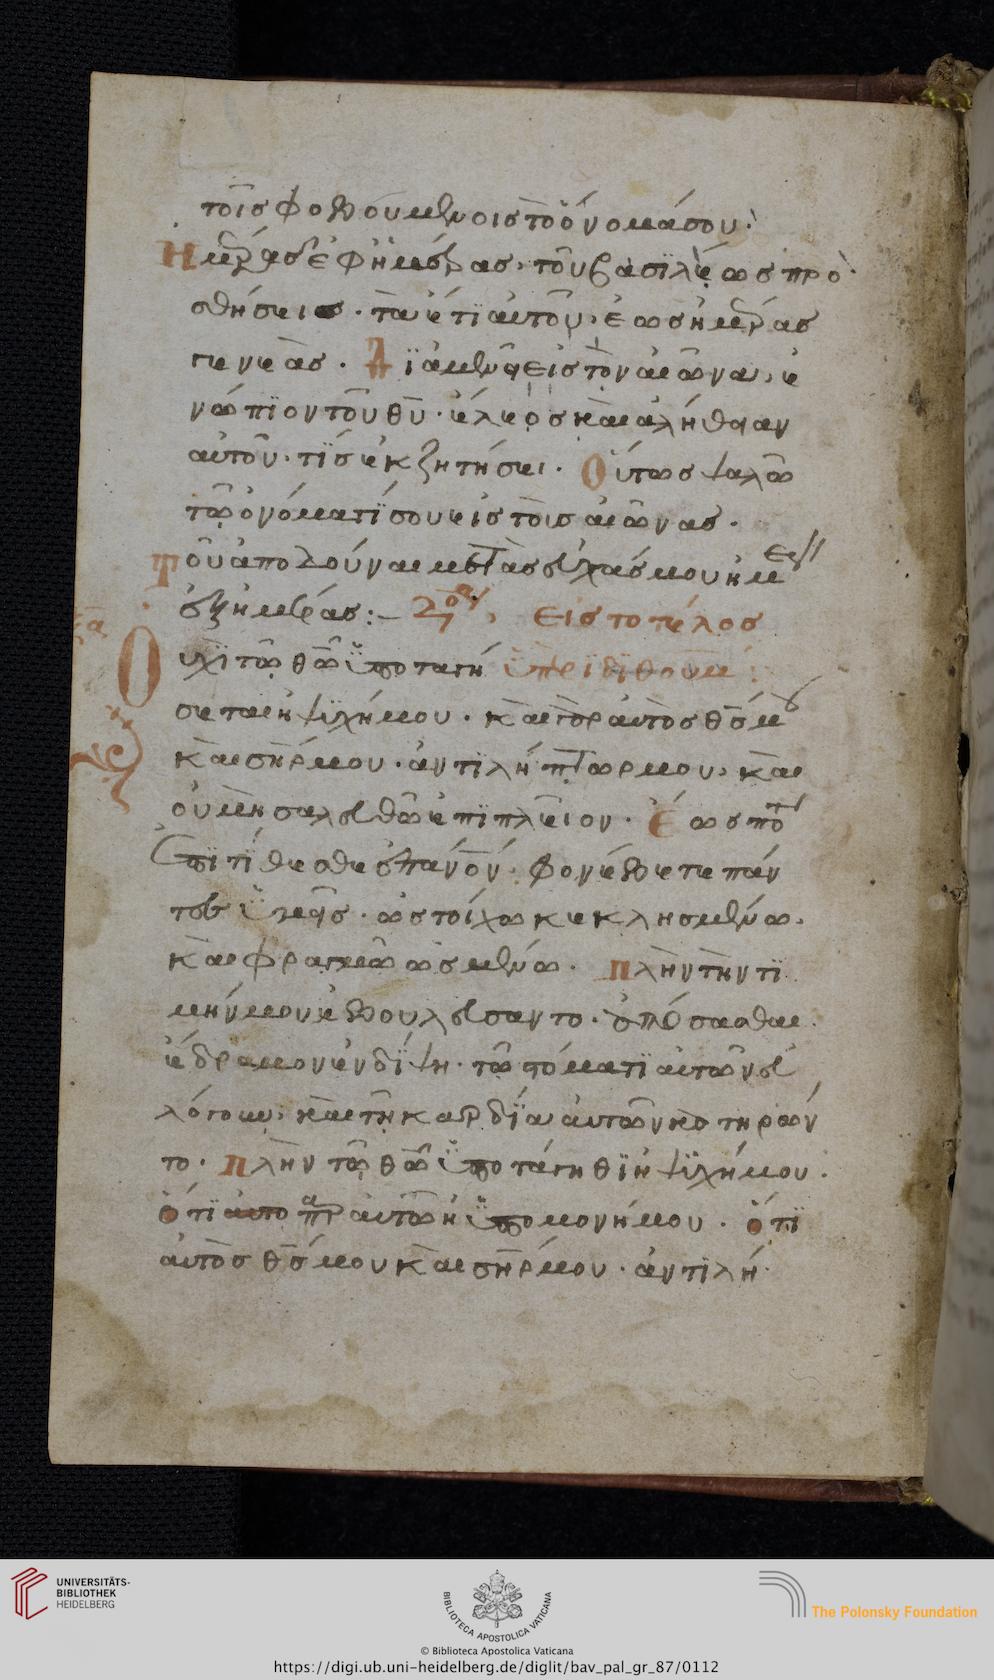 τοῖς φοβουμένοις τὸ ὄνομά σου·
Ἡμέρας ἐφ' ἡμέρας· τοῦ βασιλέως προ
σθήσεις· τὰ ἔτι αὐτοῦ· ἕως ἡμέρας
γενεᾶς· Διαμενεῖ εἰς τὸν αἰῶνα, ἐ
νώπιον τοῦ θυ· ἔλεος καὶ ἀλήθειαν
αὐτοῦ· τίς ἐκζητήσει· Οὕτως ψαλῶ
τῷ ὀνόματί σου εἰς τοὺς αἰῶνας·
Τοῦ ἀποδοῦναί με τὰς εὐχάς μου ἡμέ
ἐξ ἡμέρας:– εἰς τὸ τέλος
Οὐχὶ τῷ θῷ ὑποταγή ὑπὲρ ἰδιθουμ
σεται ἡ ψυχή μου· καὶ γὰρ αὐτὸς θς μου
καὶ σηρ μου· ἀντιλήπτωρ μου, καὶ
οὐ μὴ σαλευθῶ ἐπὶ πλεῖον· Ἕως πότε
ἐπιτίθεσθε ἐπ' ἀνον· φονεύετε πάν
τες ὑμεῖς· ὡς τοίχω κεκλημένω·
καὶ φραγμῶ ὡσμένω· πλὴν τὴν τι
μήν μου ἐβουλεύσαντο· ἀπώσασθαι·
ἔδραμον ἐν δίψη· τῷ στόματι αὐτῶν εὐ
λόγουν, καὶ τῇ καρδία αὐτῶν κατηρῶν
το· πλὴν τῷ θῷ ὑποτάγηθι ἡ ψυχή μου·
ὅτι αὐτο πρ αὐτῶ ἡ ὑπομονή μου· ὅτι
αὐτὸς θς μου καὶ σηρ μου· ἀντιλή·
UNIVERSITÄTS-
BIBLIOTHEK
HEIDELBERG
BIBLIOTECA APOSTOLICA VATICANA
The Polonsky Foundation
© Biblioteca Apostolica Vaticana
https://digi.ub.uni-heidelberg.de/diglit/bav_pal_gr_87/0112